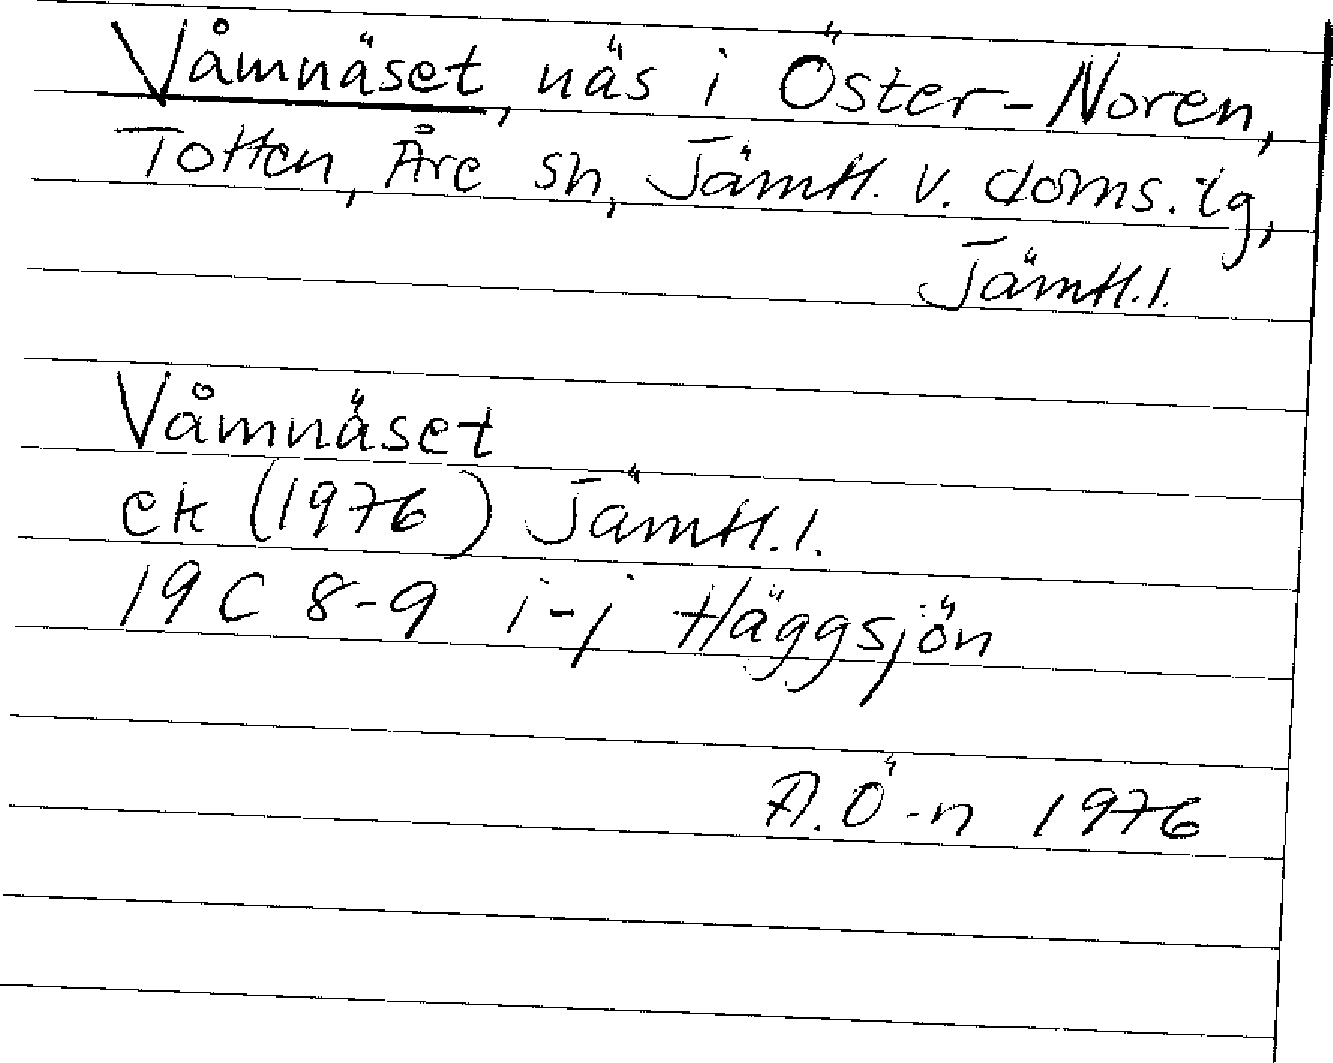 Våmnäset, näs i Öster-Noren,
Totten, Åre sn, Jämtl. v. doms. tg,
Jämtl. l.
Våmnäset
ek (1976) Jämtl. l.
19 C 8-9 i-j Häggsjön
A. Ö-n 1976